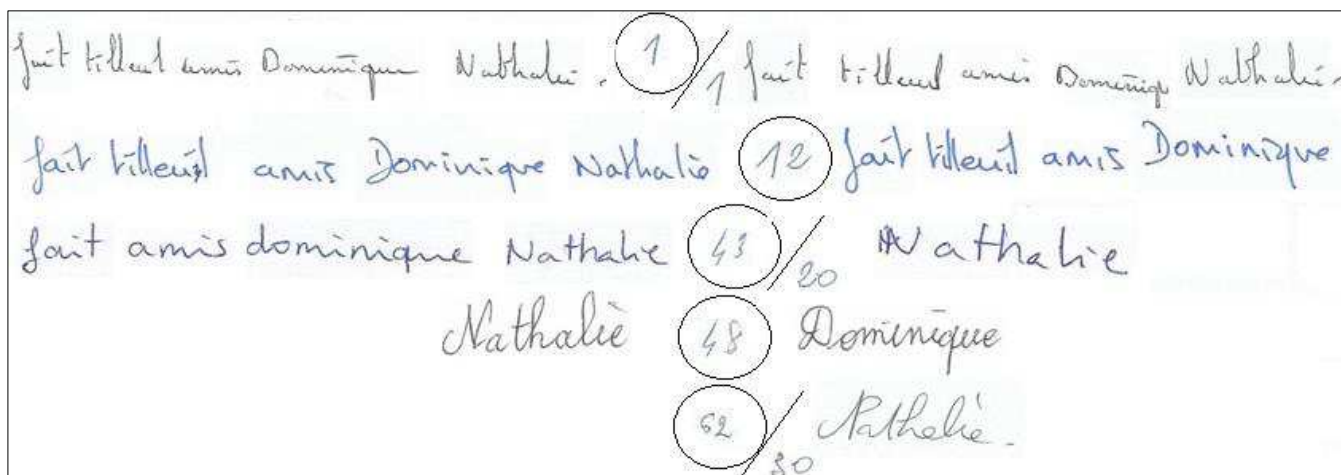 fait tilleul amis Dominique Nathalie. 1/1 fait tilleul amis Dominiq Nathalie.
fait tilleuil amis Dominique Nathalie 12 fait tilleuil amis Dominique
fait amis dominique Nathalie 43/20 Nathalie
Nathalie 48 Dominique
62/30 Nathalie.